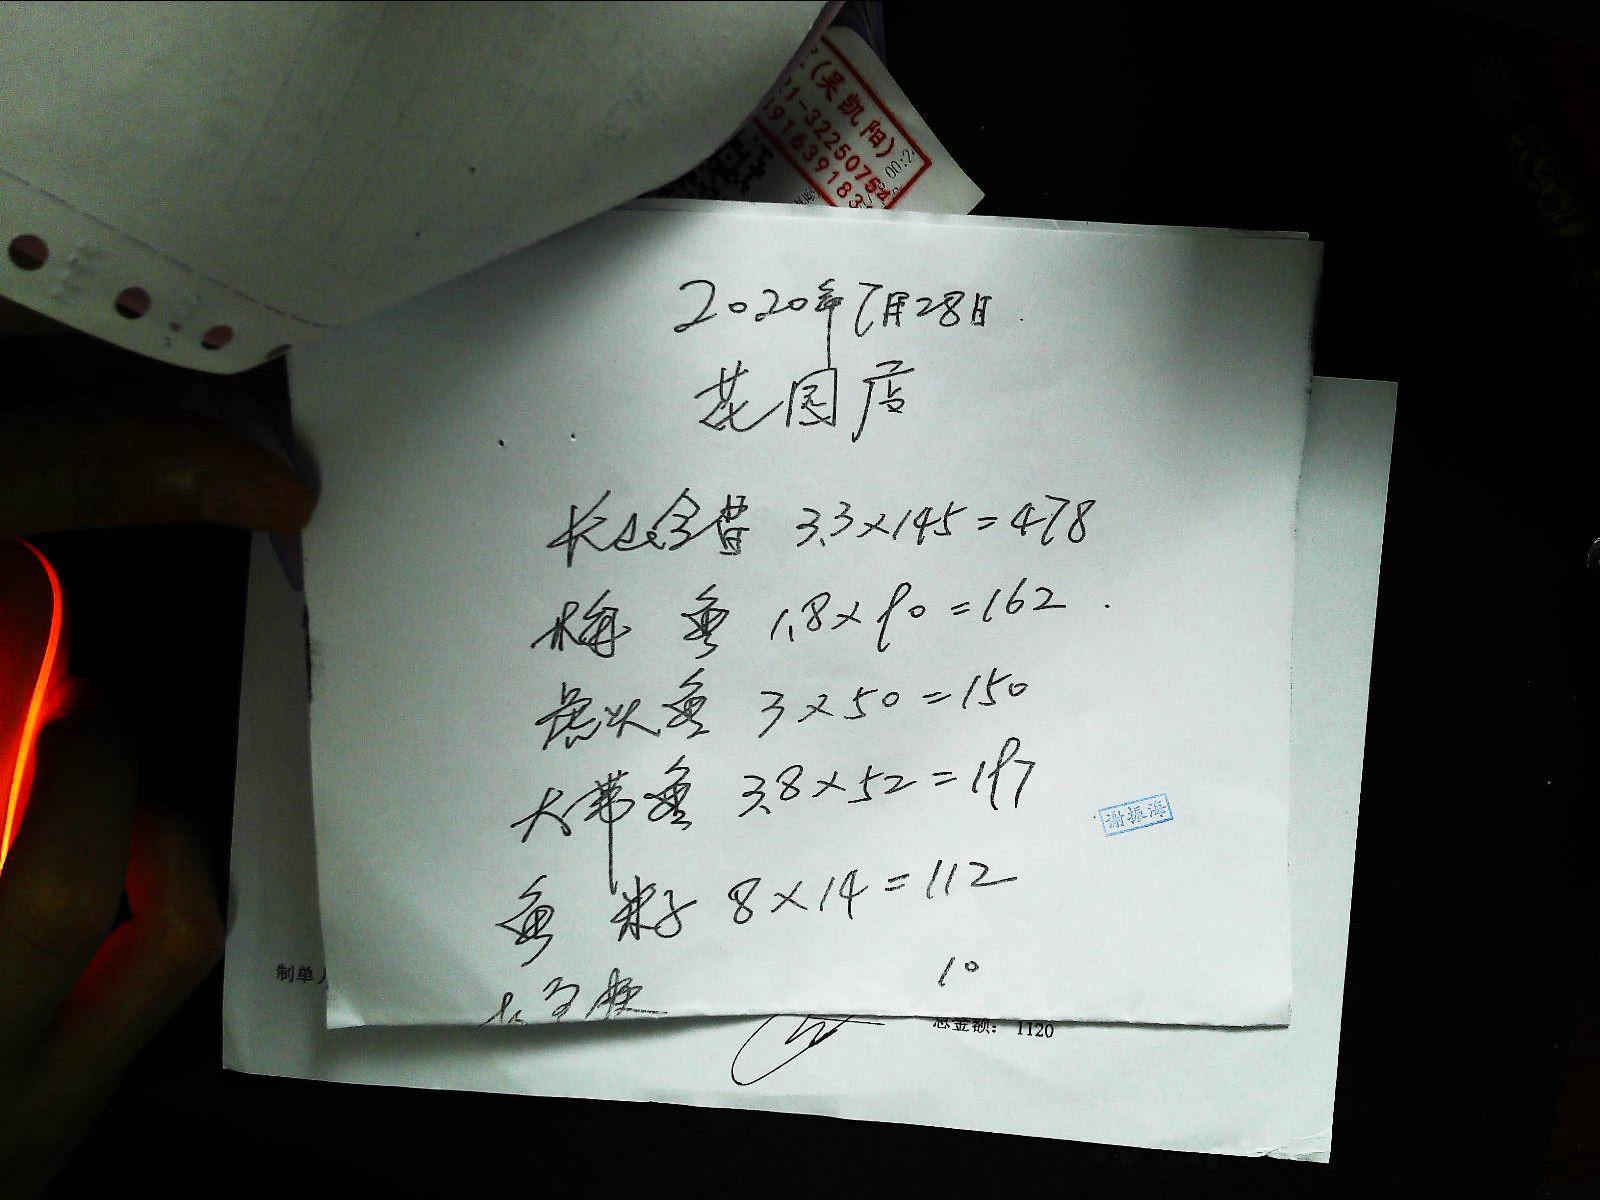 (吴凯阳)
21-32250754
916391183
00:2
2020年7月28日
花园店
长山仓昔 3.3×145=478
梅鱼 1.8×90=162
虎头鱼 3×50=150
大带鱼 3.8×52=197
谢振海
鱼籽 8×14=112
10
制单人
总金额: 1120